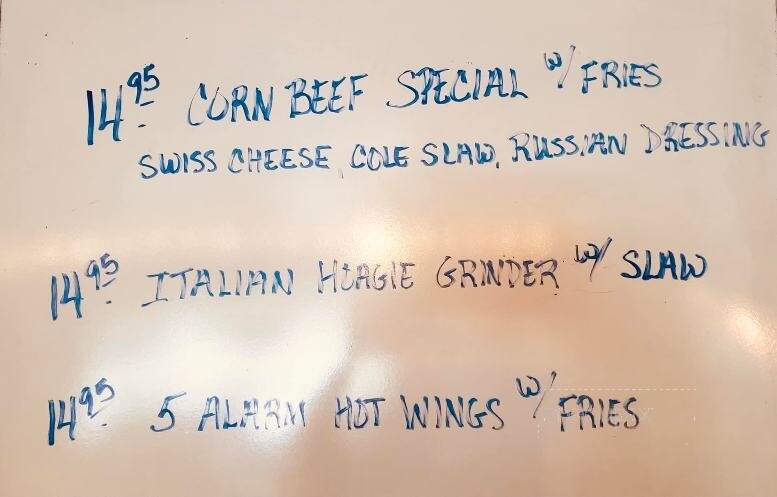 14.95 CORN BEEF SPECIAL w/ FRIES
SWISS CHEESE, COLE SLAW, RUSSIAN DRESSING
14.95 ITALIAN HOAGIE GRINDER w/ SLAW
14.95 5 ALARM HOT WINGS w/ FRIES